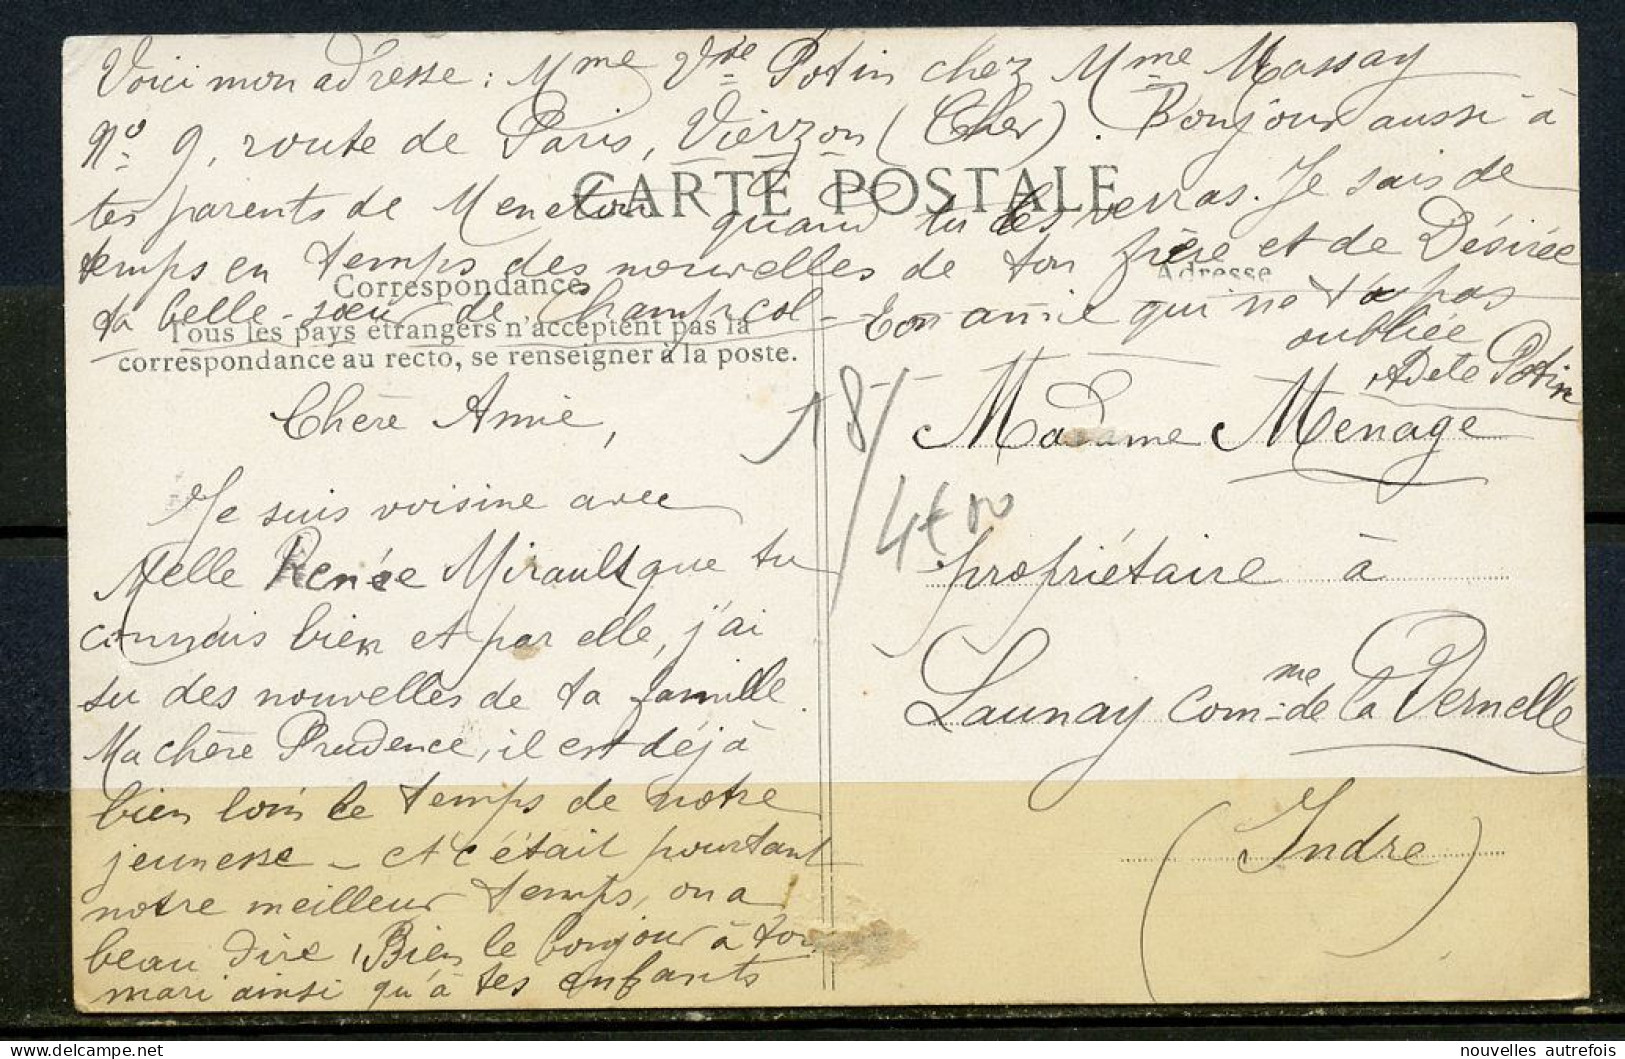 Voici mon adresse : Mme Vve Potin chez Mme Massay
No 9, route de Paris, Vierzon (Cher). Bonjour aussi à
tes parents de Menetou quand tu les verras. Je sais de
temps en temps des nouvelles de ton frère et de Désirée
ta belle-sœur de Champcol - Ton amie qui ne t'a pas
oubliée
Adele Potin
CARTE POSTALE
Correspondance
Tous les pays étrangers n'acceptent pas la
correspondance au recto, se renseigner à la poste.
Chère Amie,
Je suis voisine avec
Melle Renée Mirault que tu
connais bien et par elle, j'ai
su des nouvelles de ta famille.
Ma chère Prudence, il est déjà
bien loin le temps de notre
jeunesse - et c'était pourtant
notre meilleur temps, on a
beau dire, Bien le bonjour à ton
mari ainsi qu'à tes enfants
18/
4€00
Adresse
Madame Menage
propriétaire à
Launay Comme de la Vernelle
(Indre)
nouvelles autrefois